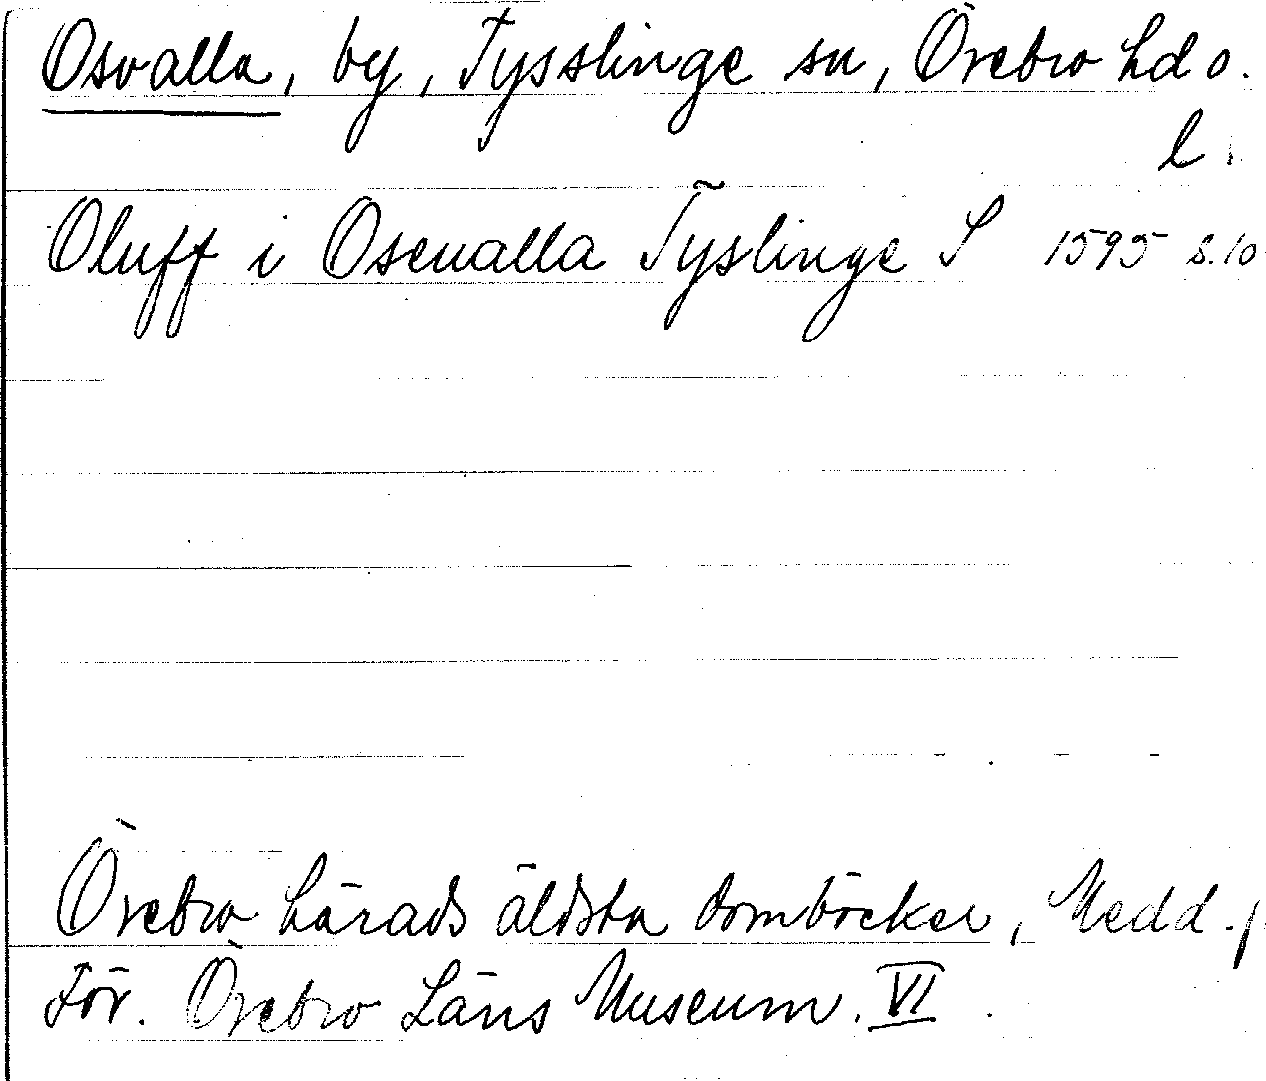 Osvalla, by, Tysslinge sn, Örebro hd o.
l.
Oluff i Oseualla Tyslinge S 1595 s. 10
Örebro härads äldsta domböcker, Medd. f.
För. Örebro Läns Museum. VI.